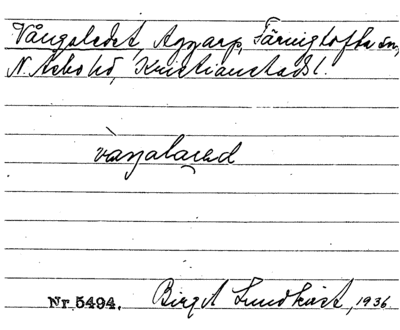 Vångaledet, Aggarp, Färingtofta sn,
N. Åsbo hd, Kristianstads l.
Nr 5494. Birgit Lundkvist, 1936.